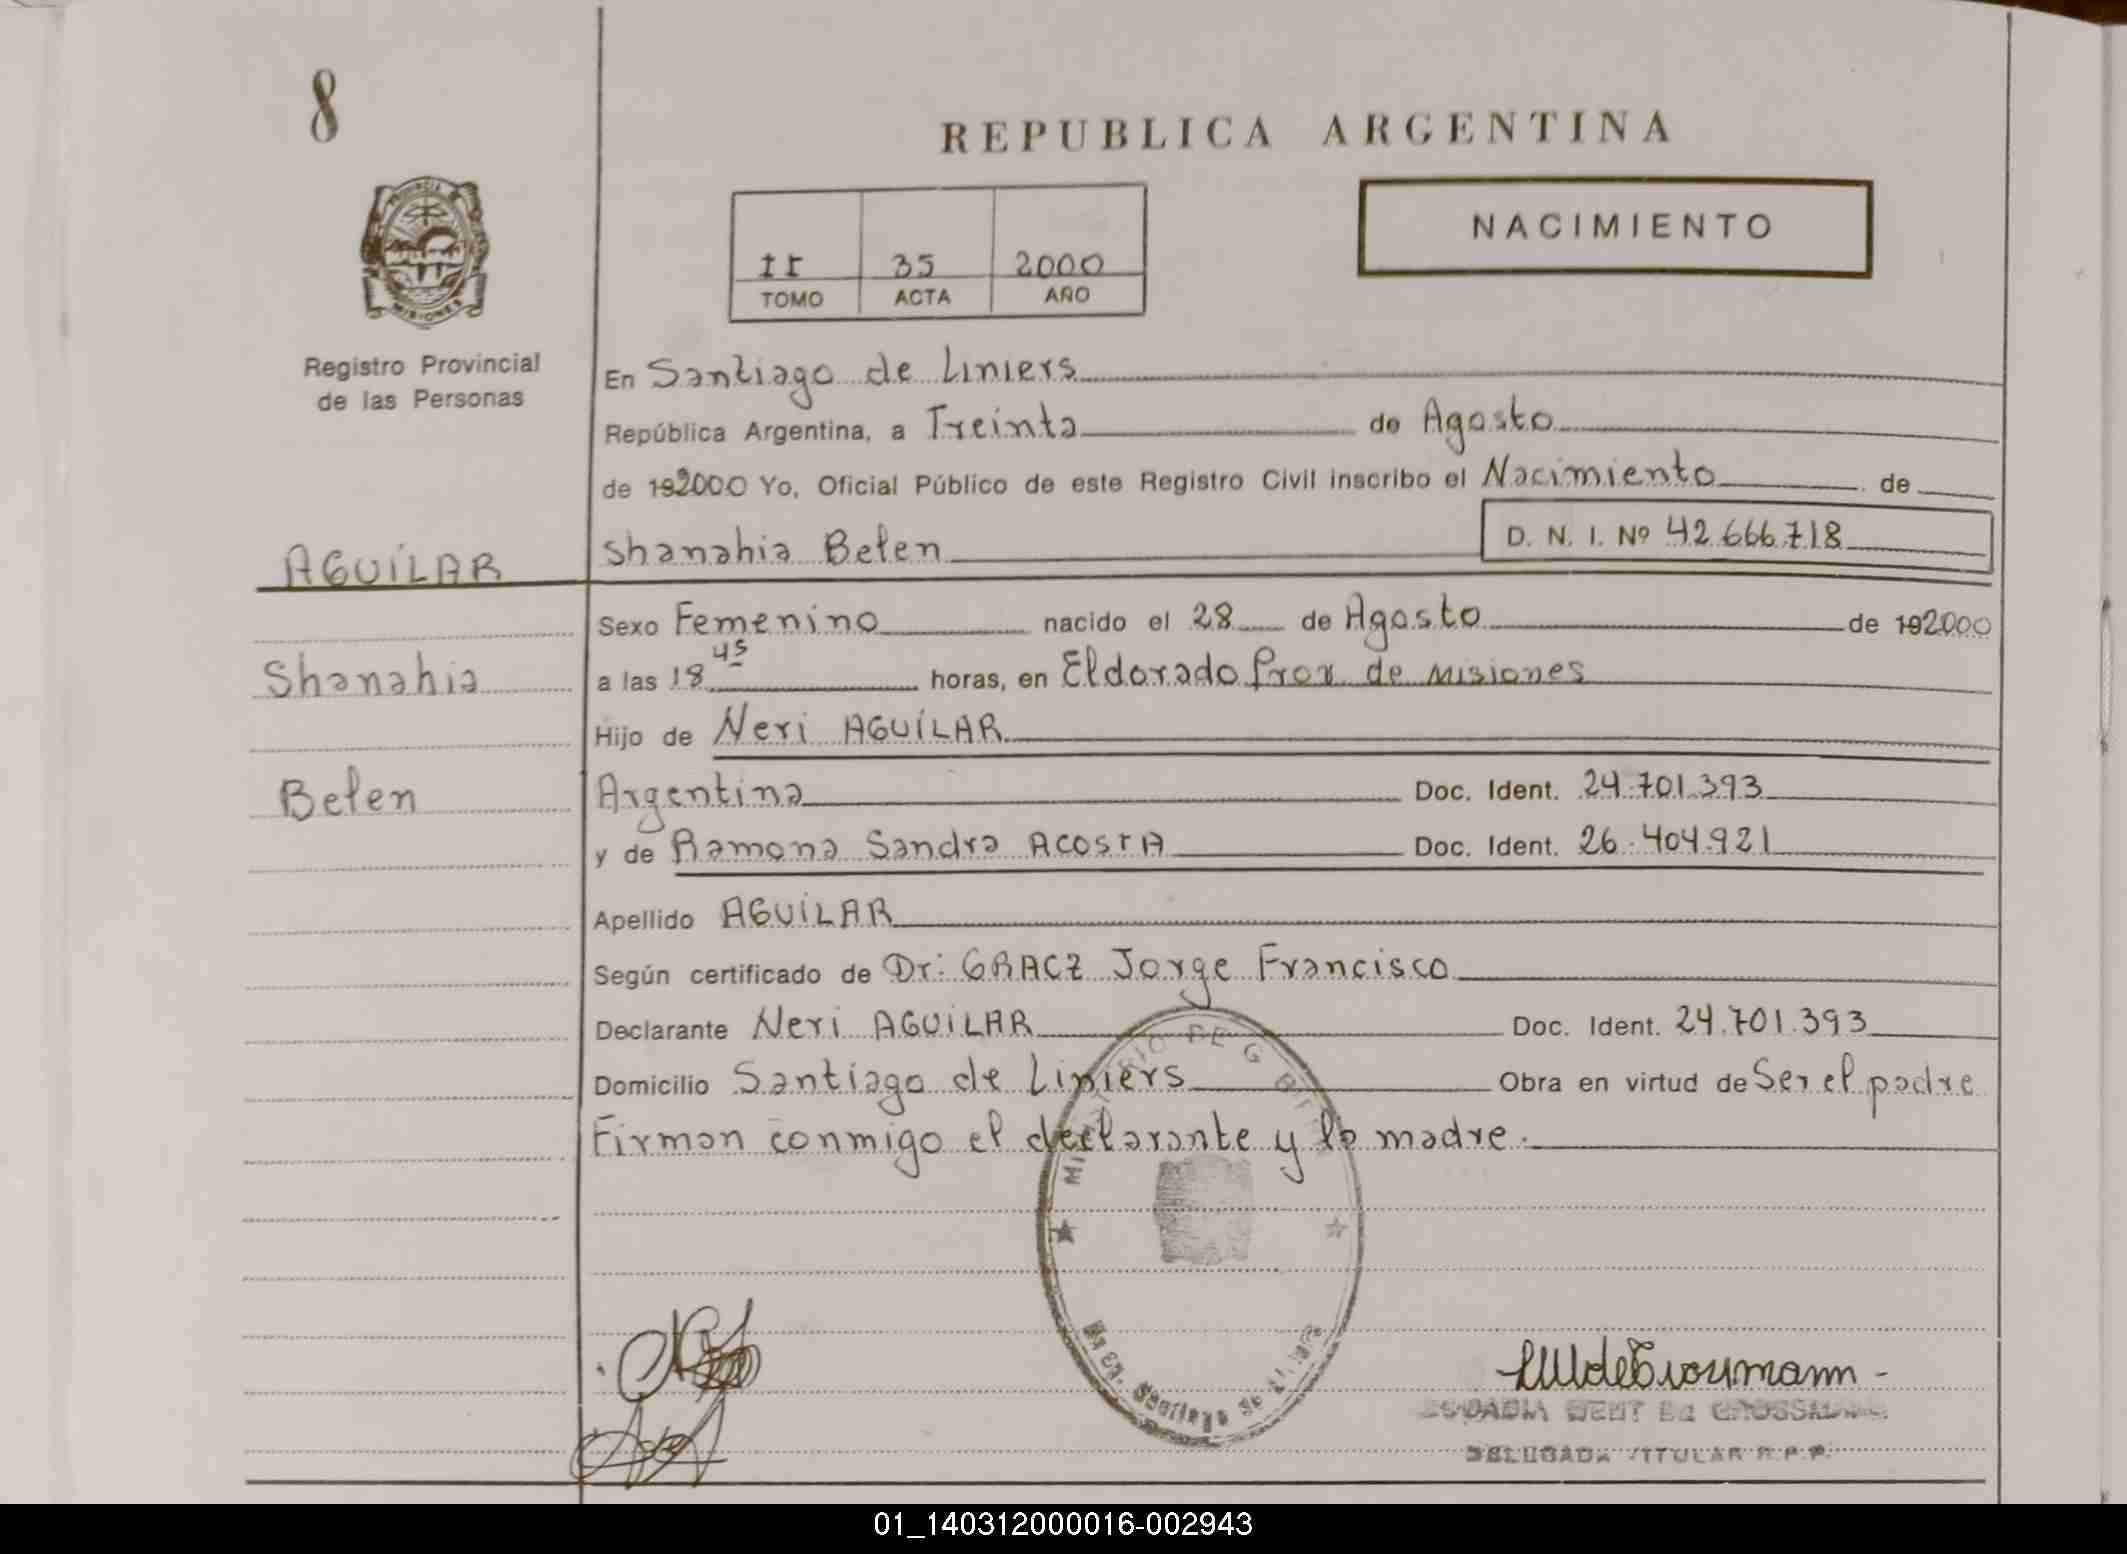 8
REPUBLICA ARGENTINA
NACIMIENTO
II 35 2000
TOMO ACTA AÑO
PROVINCIA
MISIONES
Registro Provincial
de las Personas
En Santiago de Liniers
República Argentina, a Treinta de Agosto
de 192000 Yo, Oficial Público de este Registro Civil inscribo el Nacimiento de
AGUILAR Shanahia Belen D. N. I. Nº 42.666.718
Sexo Femenino nacido el 28 de Agosto de 192000
Shanahia a las 18 45 horas, en Eldorado Prov de Misiones
Hijo de Neri AGUILAR
Belen Argentina Doc. Ident. 24.701.393
y de Ramona Sandra ACOSTA Doc. Ident. 26.404.921
Apellido AGUILAR
Según certificado de Dr: GRACZ Jorge Francisco
Declarante Neri AGUILAR Doc. Ident. 24.701.393
Domicilio Santiago de Liniers Obra en virtud de Ser el padre
Firman conmigo el declarante y la madre.
MINISTERIO DE G
Santiago de
DELEGADA TITULAR R.P.P.
01_140312000016-002943